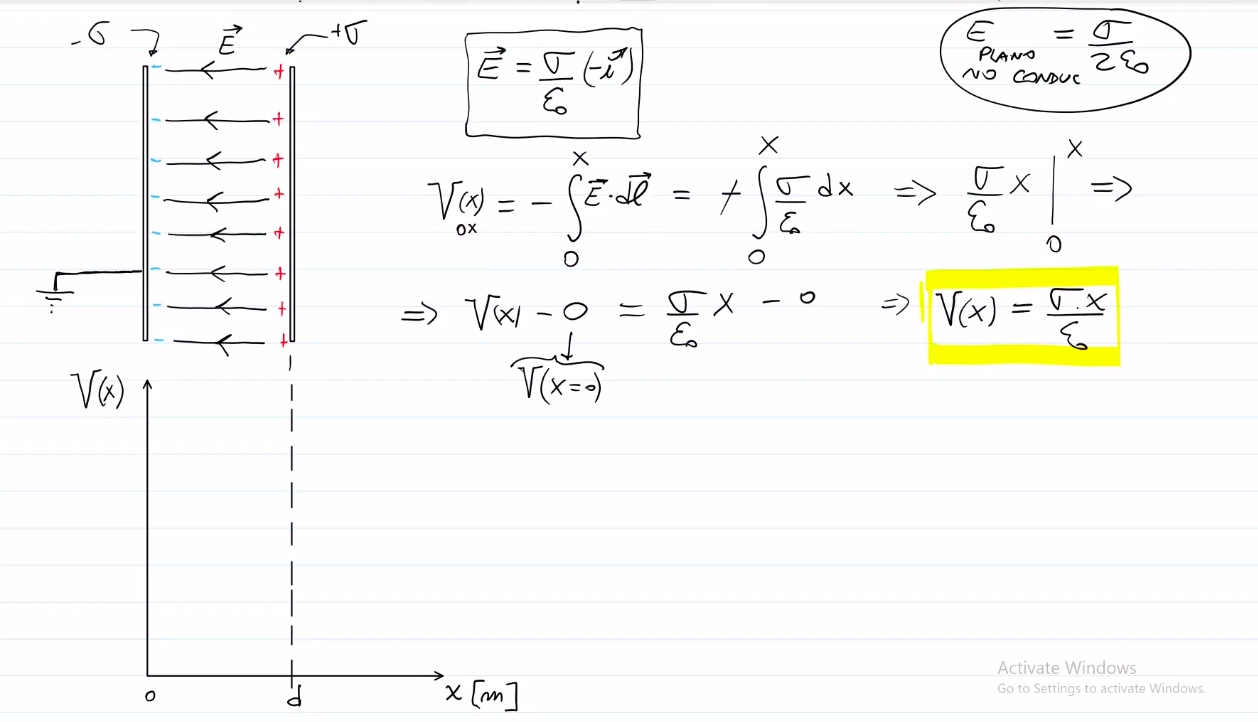 -σ E⃗ +σ
E⃗ = σ/ε₀ (-i⃗)
E PLANO NO CONDUC = σ/2ε₀
V(x)₀ₓ = - ∫₀ˣ E⃗·dl⃗ = + ∫₀ˣ σ/ε₀ dx => σ/ε₀ x |₀ˣ =>
=> V(x) - 0 = σ/ε₀ x - 0 => V(x) = σ.x/ε₀
V(x=0)
V(x)
0 d x [m]
Activate Windows
Go to Settings to activate Windows.